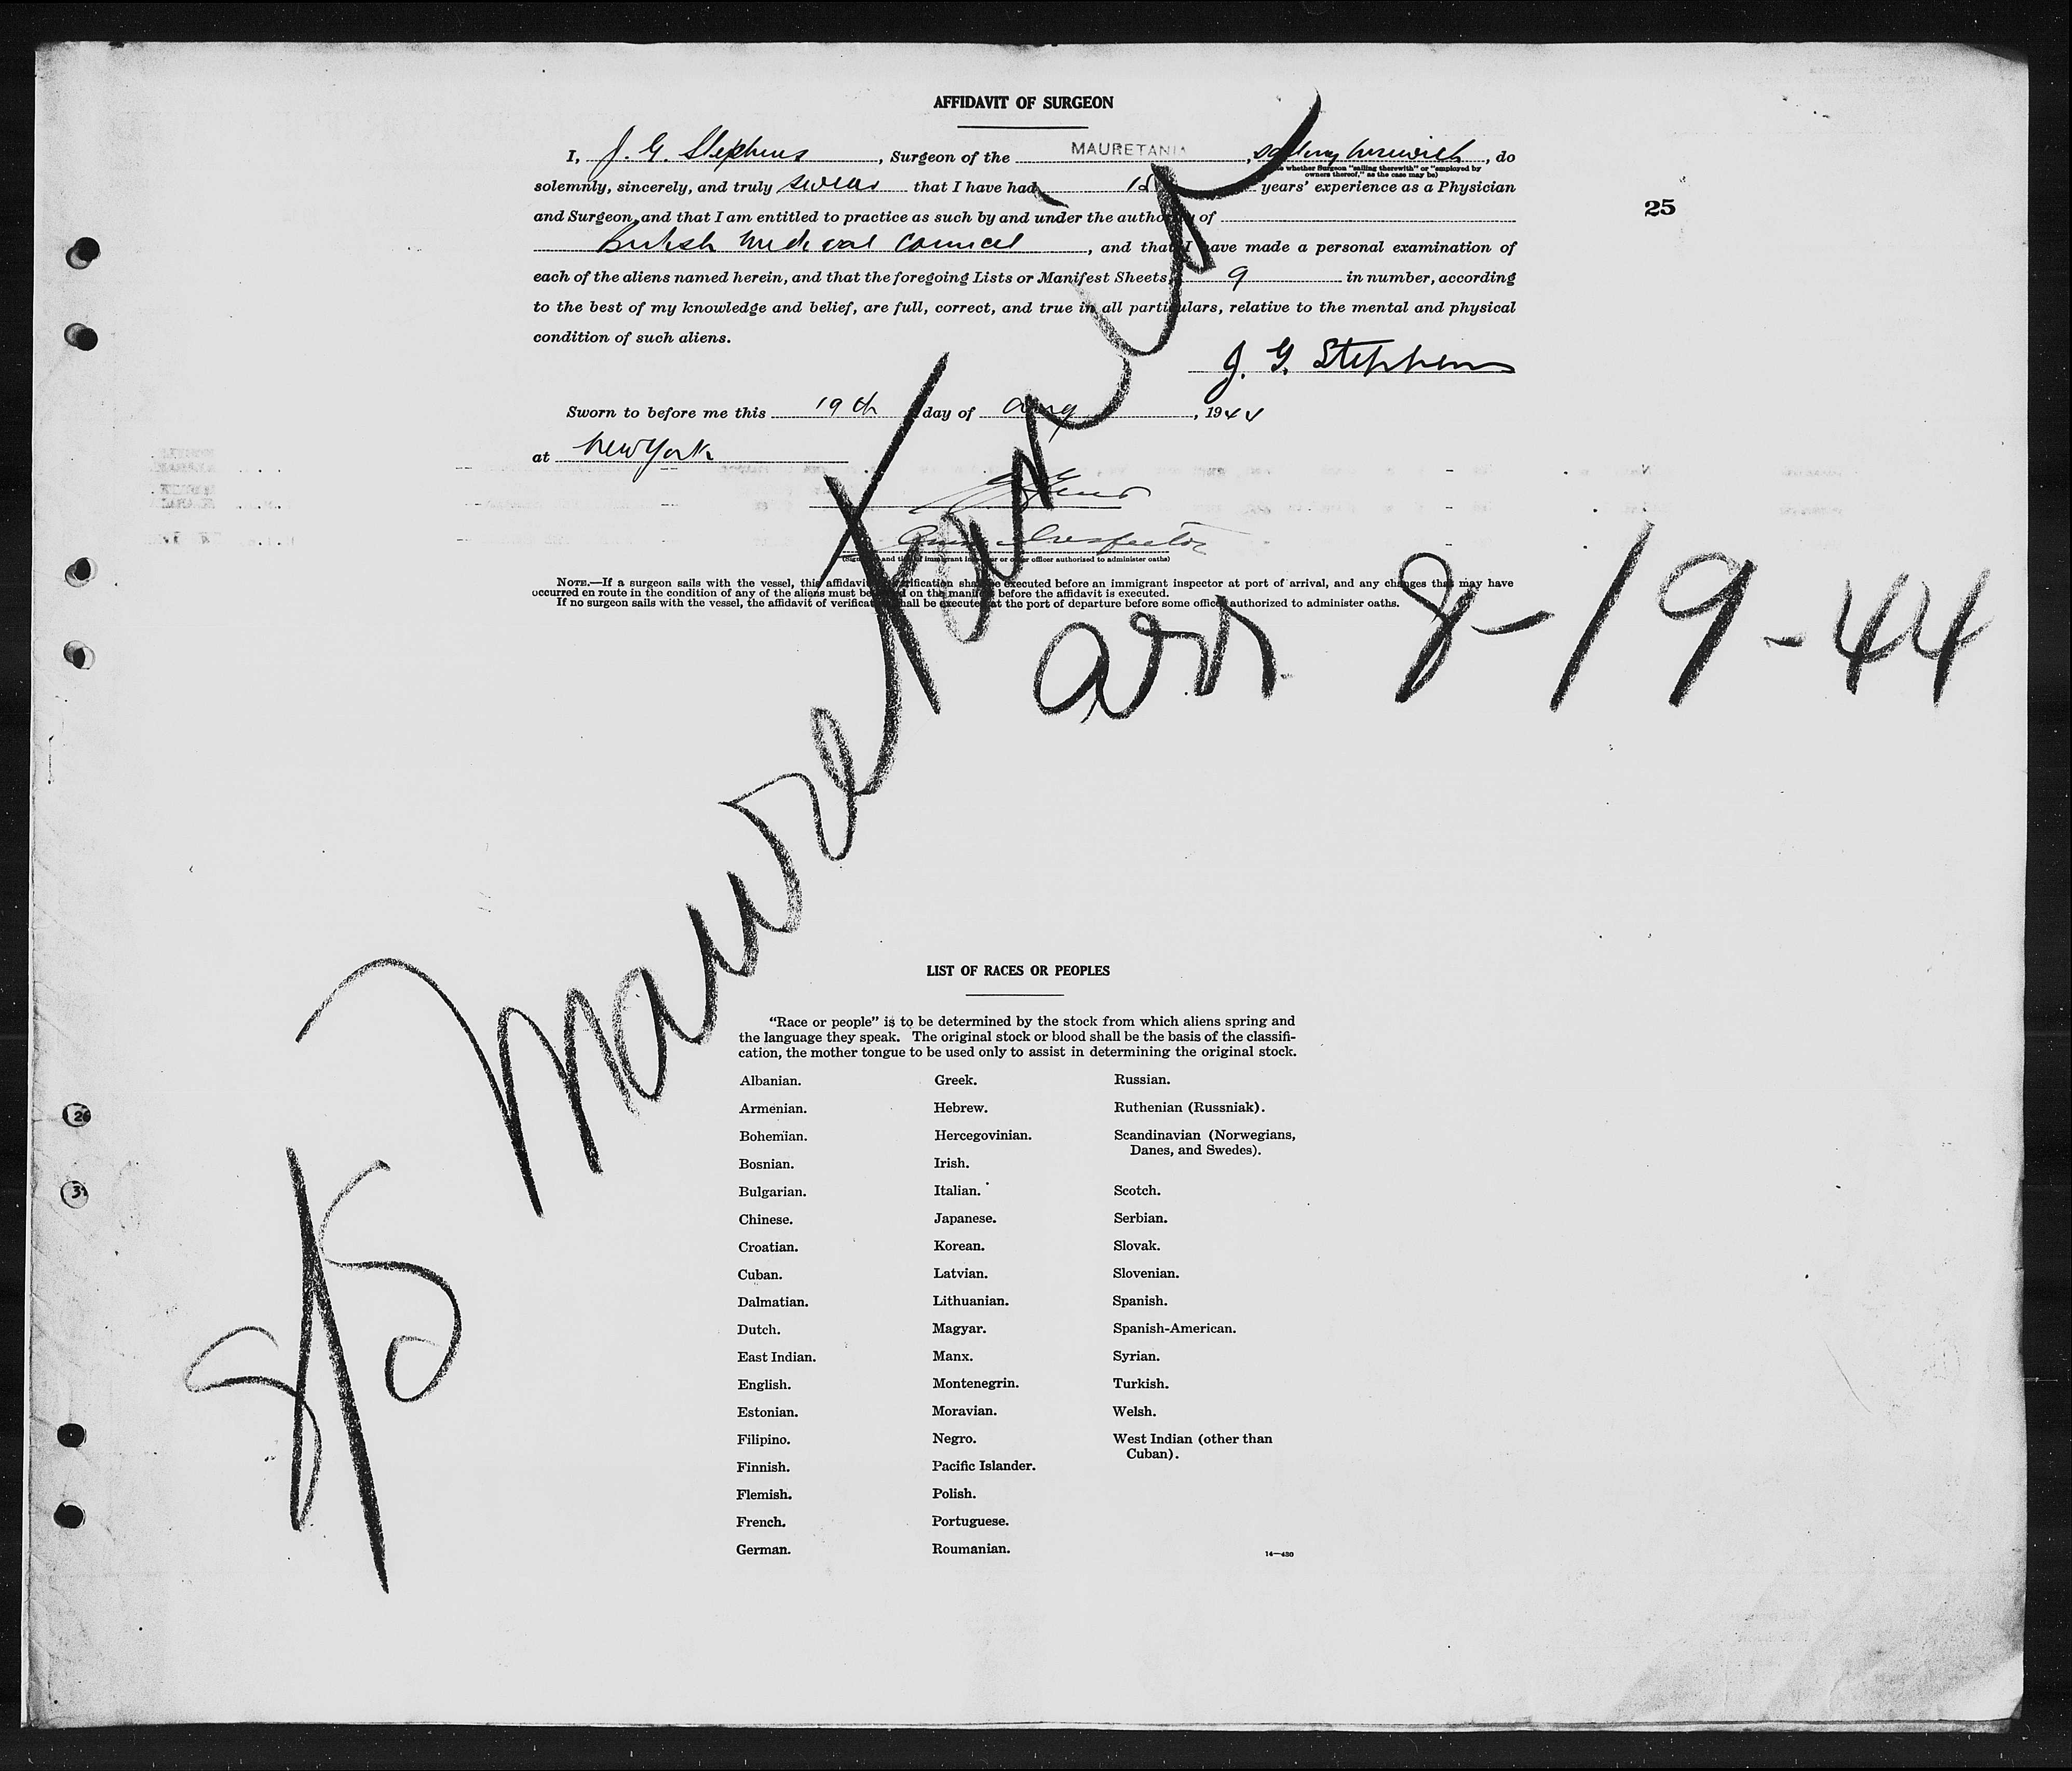 AFFIDAVIT OF SURGEON
I, J. G. Stephens, Surgeon of the MAURETANIA, sailing therewith, do
whether Surgeon "sailing therewith" or "employed by
owners thereof," as the case may be)
solemnly, sincerely, and truly swear that I have had years' experience as a Physician
25
and Surgeon, and that I am entitled to practice as such by and under the authority of
British Medical Council, and that I have made a personal examination of
each of the aliens named herein, and that the foregoing Lists or Manifest Sheets, 9 in number, according
to the best of my knowledge and belief, are full, correct, and true in all particulars, relative to the mental and physical
condition of such aliens.
J. G. Stephens
Sworn to before me this 19th day of Aug, 1944
at New York
Inspector
officer authorized to administer oaths)
NOTE.—If a surgeon sails with the vessel, this affidavit verification shall be executed before an immigrant inspector at port of arrival, and any changes that may have
occurred en route in the condition of any of the aliens must be on the manifest before the affidavit is executed.
If no surgeon sails with the vessel, the affidavit of verification shall be executed at the port of departure before some officer authorized to administer oaths.
S/S Mauretania
arr. 8-19-44
LIST OF RACES OR PEOPLES
"Race or people" is to be determined by the stock from which aliens spring and
the language they speak. The original stock or blood shall be the basis of the classifi-
cation, the mother tongue to be used only to assist in determining the original stock.
Albanian. Greek. Russian.
Armenian. Hebrew. Ruthenian (Russniak).
Bohemian. Hercegovinian. Scandinavian (Norwegians,
Danes, and Swedes).
Bosnian. Irish.
Bulgarian. Italian. Scotch.
Chinese. Japanese. Serbian.
Croatian. Korean. Slovak.
Cuban. Latvian. Slovenian.
Dalmatian. Lithuanian. Spanish.
Dutch. Magyar. Spanish-American.
East Indian. Manx. Syrian.
English. Montenegrin. Turkish.
Estonian. Moravian. Welsh.
Filipino. Negro. West Indian (other than
Cuban).
Finnish. Pacific Islander.
Flemish. Polish.
French. Portuguese.
German. Roumanian.
14—430